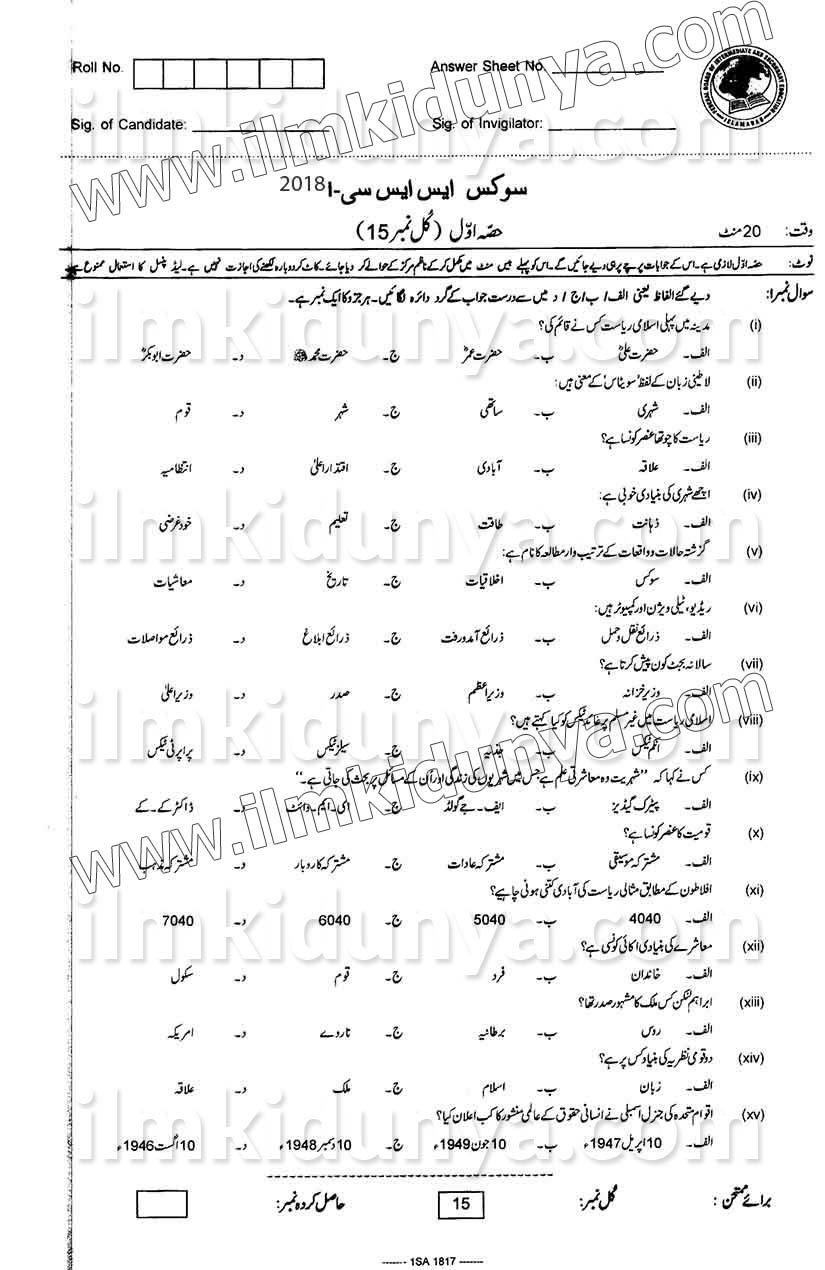 Roll No.
Answer Sheet No.
Sig. of Candidate:
Sig. of Invigilator:
FEDERAL BOARD OF INTERMEDIATE AND SECONDARY EDUCATION
ISLAMABAD
سوکس ایس ایس سی-I 2018
وقت: 20 منٹ
حصہ اوّل (کُل نمبر 15)
نوٹ: حصہ اوّل لازمی ہے۔ اس کے جوابات پرچے پر ہی دیے جائیں گے۔ اس کو پہلے بیس منٹ میں مکمل کر کے ناظم مرکز کے حوالے کر دیا جائے۔ کاٹ کر دوبارہ لکھنے کی اجازت نہیں ہے۔ لیڈ پنسل کا استعمال ممنوع ہے
سوال نمبر ا: دیے گئے الفاظ یعنی الف / ب / ج / د میں سے درست جواب کے گرد دائرہ لگائیں۔ ہر جزو کا ایک نمبر ہے۔
(i) مدینہ میں پہلی اسلامی ریاست کس نے قائم کی؟
الف۔ حضرت علیؓ ب۔ حضرت عمرؓ ج۔ حضرت محمد ﷺ د۔ حضرت ابوبکرؓ
(ii) لاطینی زبان کے لفظ سویٹاس کے معنی ہیں:
الف۔ شہری ب۔ ساتھی ج۔ شہر د۔ قوم
(iii) ریاست کا چوتھا عنصر کونسا ہے؟
الف۔ علاقہ ب۔ آبادی ج۔ اقتدار اعلیٰ د۔ انتظامیہ
(iv) اچھے شہری کی بنیادی خوبی ہے:
الف۔ ذہانت ب۔ طاقت ج۔ تعلیم د۔ خود غرضی
(v) گزشتہ حالات و واقعات کے ترتیب وار مطالعہ کا نام ہے:
الف۔ سوکس ب۔ اخلاقیات ج۔ تاریخ د۔ معاشیات
(vi) ریڈیو، ٹیلی ویژن اور کمپیوٹر ہیں:
الف۔ ذرائع نقل و حمل ب۔ ذرائع آمد و رفت ج۔ ذرائع ابلاغ د۔ ذرائع مواصلات
(vii) سالانہ بجٹ کون پیش کرتا ہے؟
الف۔ وزیر خزانہ ب۔ وزیر اعظم ج۔ صدر د۔ وزیر اعلیٰ
(viii) اسلامی ریاست میں غیر مسلم پر عائد ٹیکس کو کیا کہتے ہیں؟
الف۔ انکم ٹیکس ب۔ جزیہ ج۔ سیلز ٹیکس د۔ پراپرٹی ٹیکس
(ix) کس نے کہا کہ "شہریت وہ معاشرتی علم ہے جس میں شہریوں کی زندگی اور اُن کے مسائل پر بحث کی جاتی ہے۔"
الف۔ پیٹرک گیڈیز ب۔ ایف۔ جے گولڈ ج۔ ای۔ ایم۔ وائٹ د۔ ڈاکٹر کے۔ کے
(x) قومیت کا عنصر کونسا ہے؟
الف۔ مشترکہ موسیقی ب۔ مشترکہ عادات ج۔ مشترکہ کاروبار د۔ مشترکہ مذہب
(xi) افلاطون کے مطابق مثالی ریاست کی آبادی کتنی ہونی چاہیے؟
الف۔ 4040 ب۔ 5040 ج۔ 6040 د۔ 7040
(xii) معاشرے کی بنیادی اکائی کونسی ہے؟
الف۔ خاندان ب۔ فرد ج۔ قوم د۔ سکول
(xiii) ابراہم لنکن کس ملک کا مشہور صدر تھا؟
الف۔ روس ب۔ برطانیہ ج۔ ناروے د۔ امریکہ
(xiv) دو قومی نظریہ کی بنیاد کس پر ہے؟
الف۔ زبان ب۔ اسلام ج۔ ملک د۔ علاقہ
(xv) اقوام متحدہ کی جنرل اسمبلی نے انسانی حقوق کے عالمی منشور کا کب اعلان کیا؟
الف۔ 10 اپریل 1947ء ب۔ 10 جون 1949ء ج۔ 10 دسمبر 1948ء د۔ 10 اگست 1946ء
برائے ممتحن: کُل نمبر: 15 حاصل کردہ نمبر:
------- 1SA 1817 -------
www.ilmkidunya.com
www.ilmkidunya.com
www.ilmkidunya.com
ilmkidunya.com
ilmkidunya.com
ilmkidunya.com
ilmkidunya.com
ilmkidunya.com
ilmkidunya.com